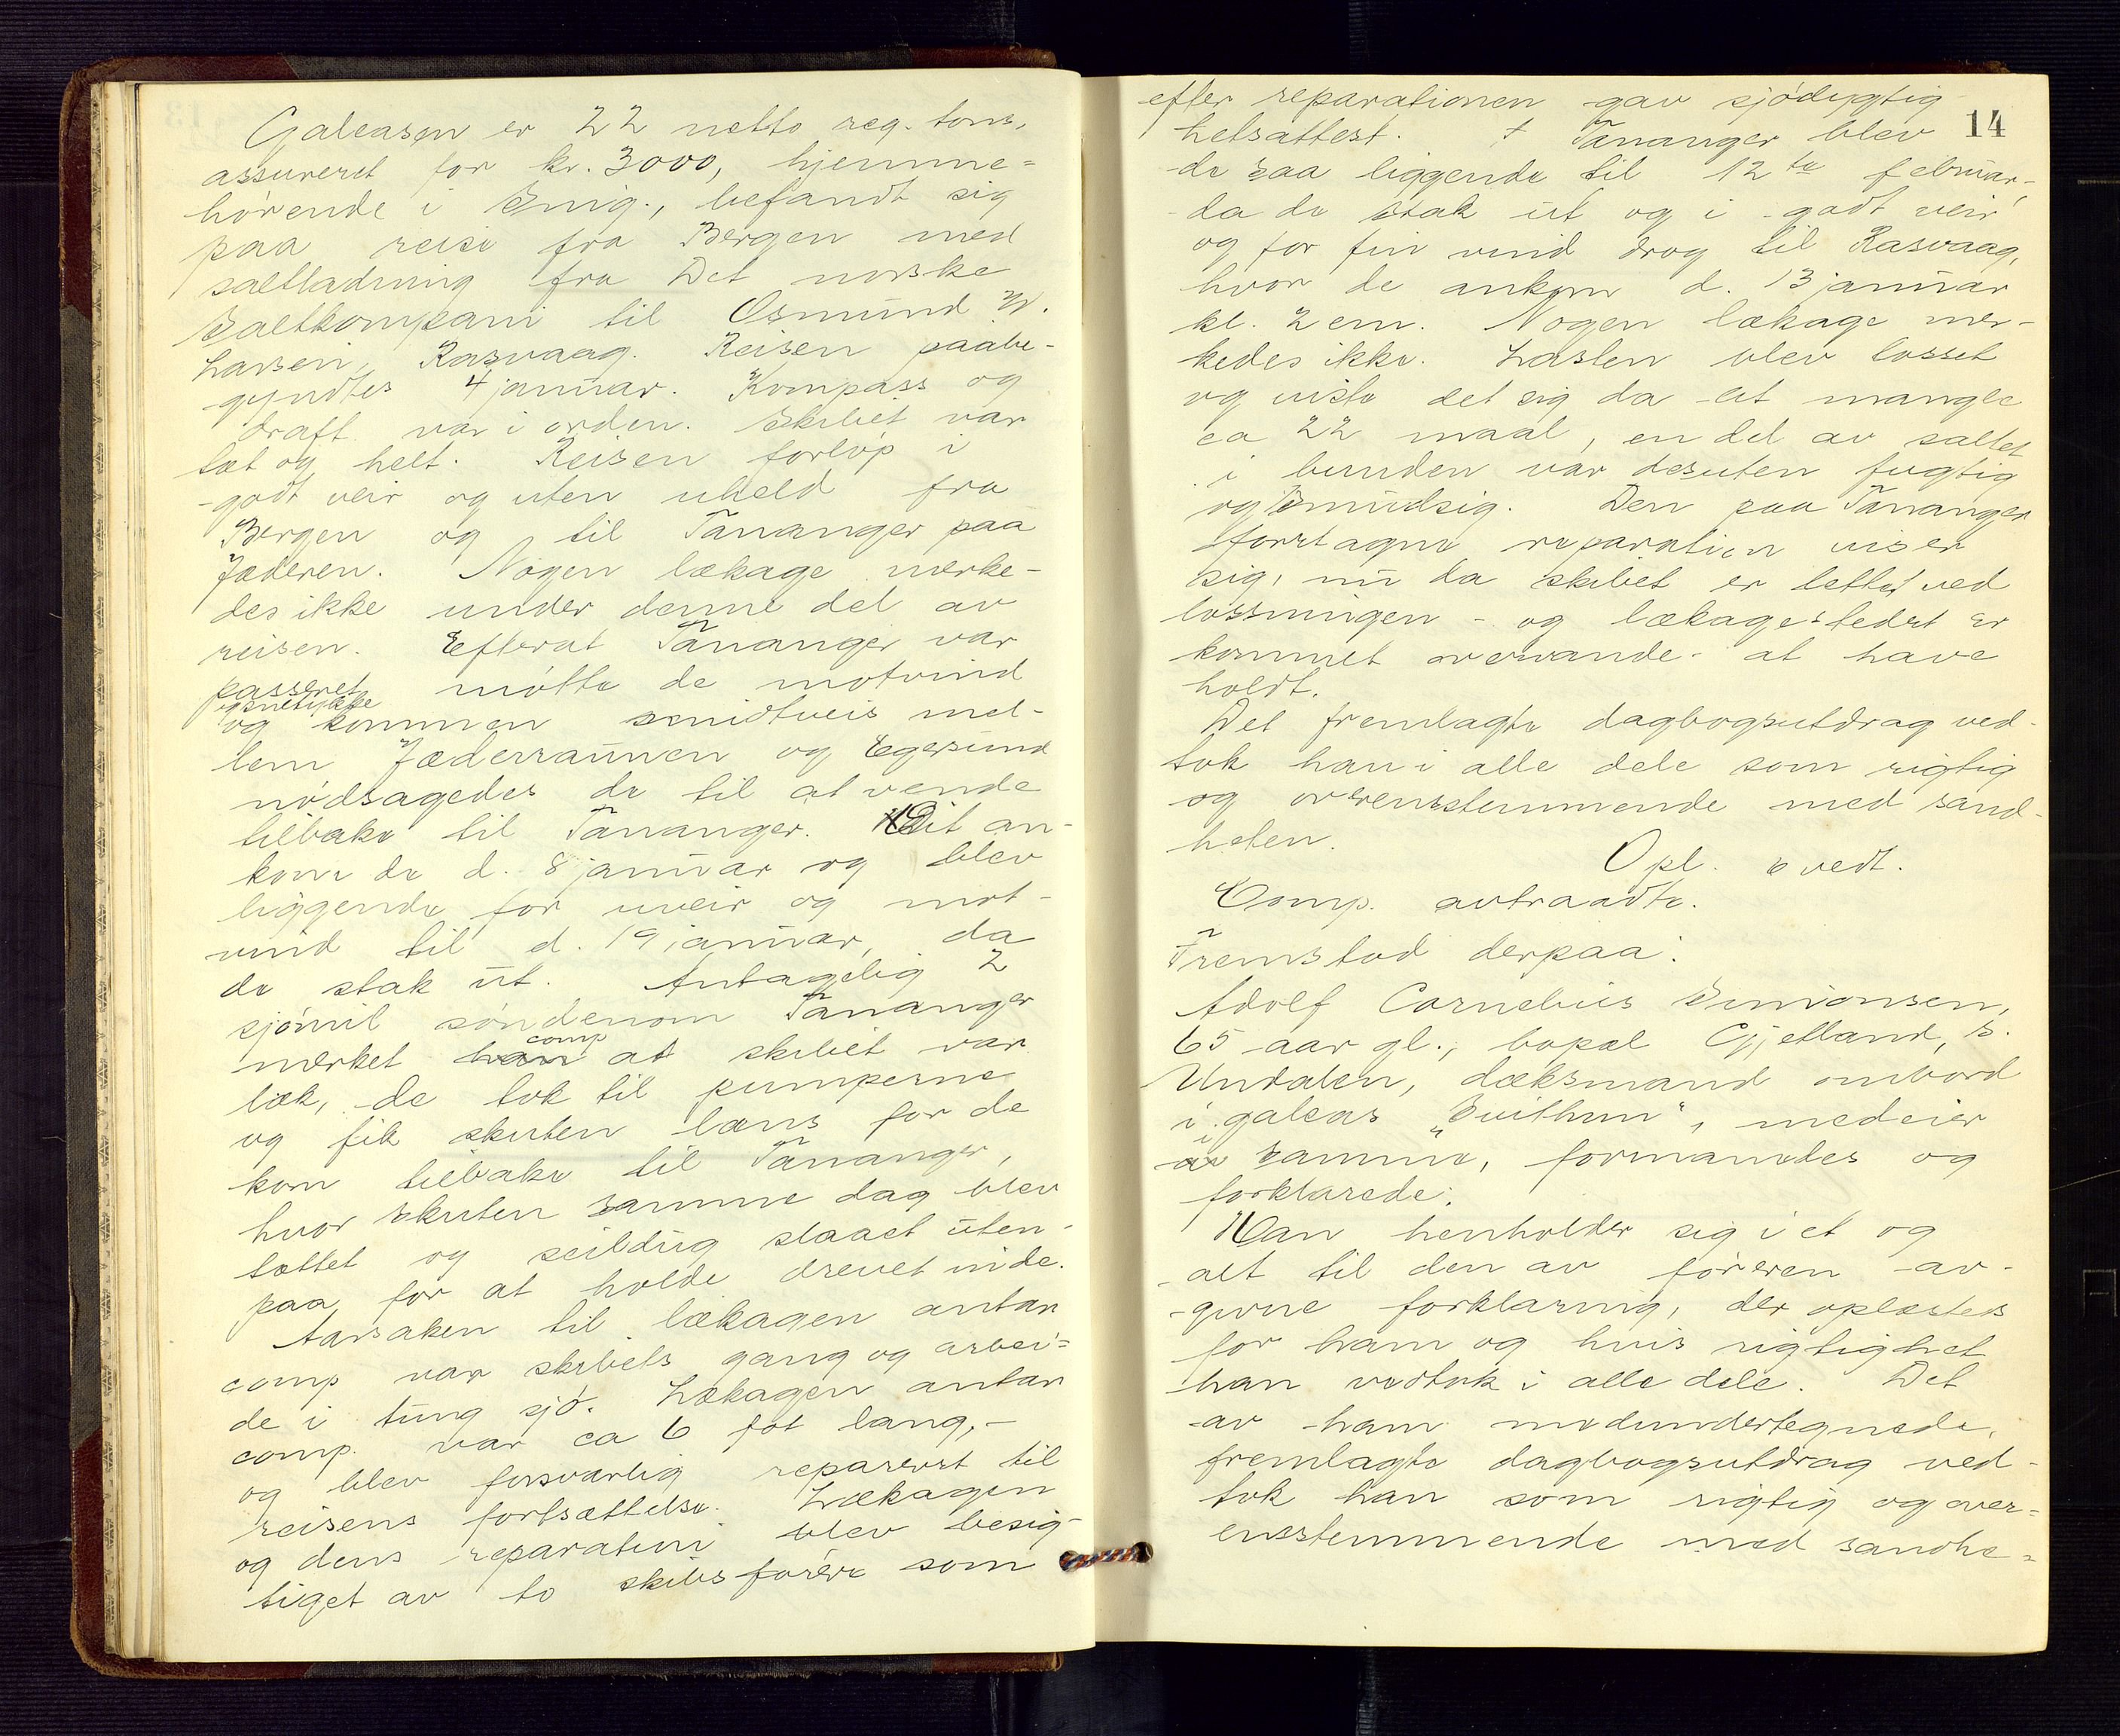 Galeasen er 22 netto reg. tons,
assureret for kr. 3000, hjemme=
hörende i Snig., befandt sig
paa reise fra Bergen med
saltladning fra Det norske
Saltkompani til Osmund W.
Larsen, Rasvaag. Reisen paabe-
gyndtes 4 januar. Kompass og
draft var i orden. Skibet var
tæt og helt. Reisen forlöp i
godt veir og uten uheld fra
Bergen og til Tananger paa
Jæderen. Nogen lækage merke-
des ikke under denne del av
reisen. Efterat Tananger var
passeret mötte de motvind
og snetykke
og kommen smidtveis mel-
lem Jæderraunen og Egersund
nödsagedes de til at vende
tilbake til Tananger. Dit an-
kom de d. 8 januar og blev
liggende for uveir og mot-
vind til d. 19 januar, da
de stak ut. Antagelig 2
sjömil söndenom Tananger
merket han comp at skibet var
læk, de tok til pumperne
og fik skuten læns för de
kom tilbake til Tananger,
hvor skuten samme dag blev
tættet og seildug slaaet uten-
paa for at holde drevet inde.
Aarsaken til lækagen antar
comp var skibets gang og arbei=
de i tung sjö. Lækagen antar
comp. var ca 6 fot lang,-
og blev forsvarlig reparert til
reisens fortsættelse. Lækagen
og dens reparation blev besig-
tiget av to skibsförere som
14
efter reparationen gav sjödygtig
hetsattest. I Tananger blev
de saa liggende til 12te februar,
da de stak ut og i godt veir
og for fin vind drog til Rasvaag,
hvor de ankom d. 13 januar
kl. 2 em. Nogen lækage mer-
kedes ikke. Lasten blev losset
og viste det sig da at mangle
ca 22 maal, en del av saltet
i bunden var desuten fugtig
og smudsig. Den paa Tananger
foretagne reparation viser
sig, nu da skibet er lettet ved
losningen - og lækagestedet er
kommet overvande - at have
holdt.
Det fremlagte dagbogsutdrag ved-
tok han i alle dele som rigtig
og overensstemmende med sand-
heten.
Opl. & vedt.
Comp. avtraadte.
Fremstod derpaa:
Adolf Cornelius Simonsen,
65 aar gl., bopæl Gjetland, S.
Undalen, dæksmand ombord
i galeas "Svithun", medeier
av i samme, formanedes og
forklarede:
Han henholder sig i et og
alt til den av föreren av-
givne forklaring, der oplæstes
for ham og hvis rigtighet
han vedtok i alle dele. Det
av ham medundertegnede,
fremlagte dagbogsutdrag ved-
tok han som rigtig og over=
ensstemmende med sandhe=